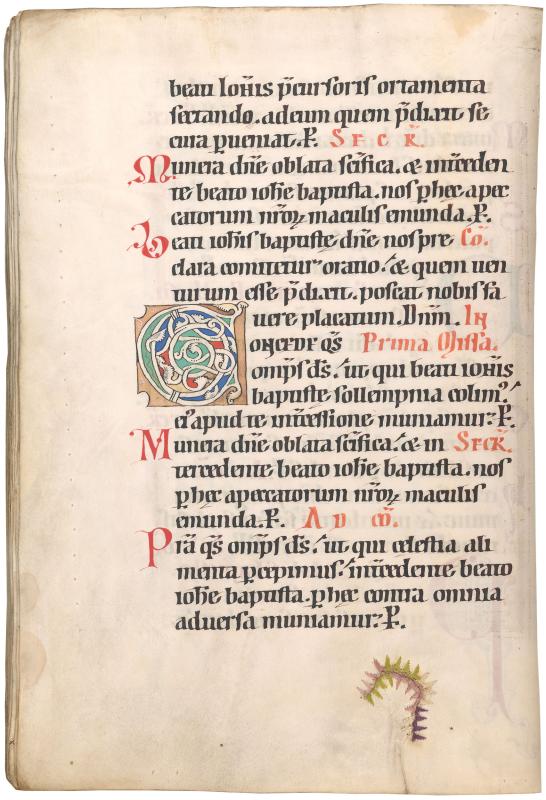 beati Ioh̅is p̅cursoris ortamenta
sectando. ad eum quem p̅dixit se
cura ꝑueniat. P̲. SECR̅.
Munera dn̅e oblata sc̅ifica. & int̅ceden
te beato ioh̅e baptista. nos ꝑ hec a pec
catorum nr̅oꝝ maculis emunda. P̲.
Beati ioh̅is baptistę dn̅e nos pre CO̅.
clara comitetur oratio. & quem uen
turum esse p̅dixit. poscat nobis fa
uere placatum. Dnm̅. IN
CONCEDE qs̅ Prima Missa.
omp̅s ds̅. ut qui beati iohis̅
baptistę sollempnia colimꝰ.
eiꝰ apud te int̅cessione muniamur. P̲.
Munera dn̅e oblata sc̅ifica. & in SECR̅.
tercedente beato ioh̅e baptista. nos
ꝑ hec a peccatorum nr̅oꝝ maculis
emunda. P̲. AD CO̅.
Pr̅a qs̅ omp̅s ds̅. ut qui celestia ali
menta percepimus. int̅cedente beato
ioh̅e baptista. ꝑ hec contra omnia
aduersa muniamur. P̲.